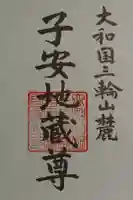 大和国三輪山麓
子安地蔵尊